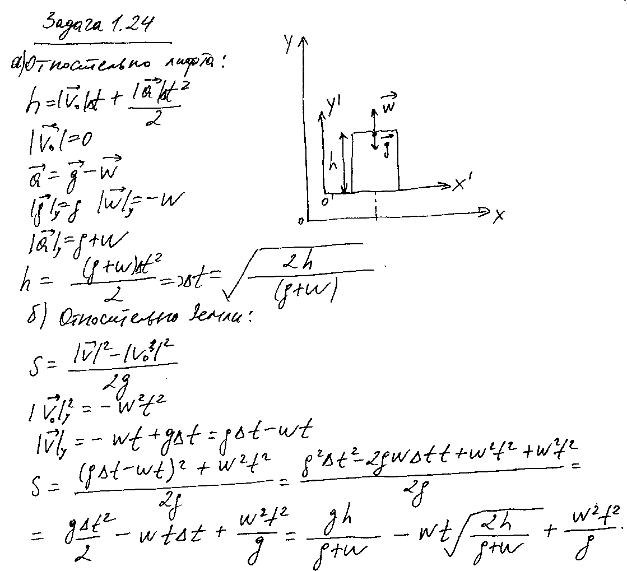 Задача 1.24
а) Относительно лифта:
h = |V⃗₀|Δt + |a⃗|Δt²/2
|V⃗₀| = 0
a⃗ = g⃗ - w⃗
|g⃗|ᵧ = g |w⃗|ᵧ = -w
|a⃗|ᵧ = g+w
h = (g+w)Δt²/2 => Δt = √(2h/(g+w))
б) Относительно Земли:
S = (|V⃗|² - |V⃗₀|²)/2g
|V⃗₀|ᵧ² = -w²t²
|V⃗|ᵧ = -wt + gΔt = gΔt - wt
S = ((gΔt - wt)² + w²t²)/2g = (g²Δt² - 2gwΔtt + w²t² + w²t²)/2g =
= gΔt²/2 - wtΔt + w²t²/g = gh/(g+w) - wt√(2h/(g+w)) + w²t²/g.
y
y'
w⃗
g⃗
h
x'
o'
o
x